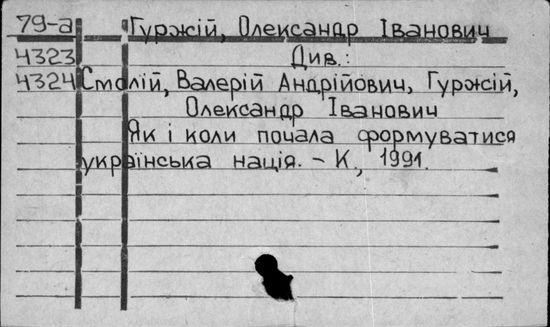 79-а Гуржій, Олександр Іванович
4323 Див.:
4324 Смолій, Валерій Андрійович, Гуржій,
Олександр Іванович
Як і коли почала формуватися
українська нація. – К., 1991.